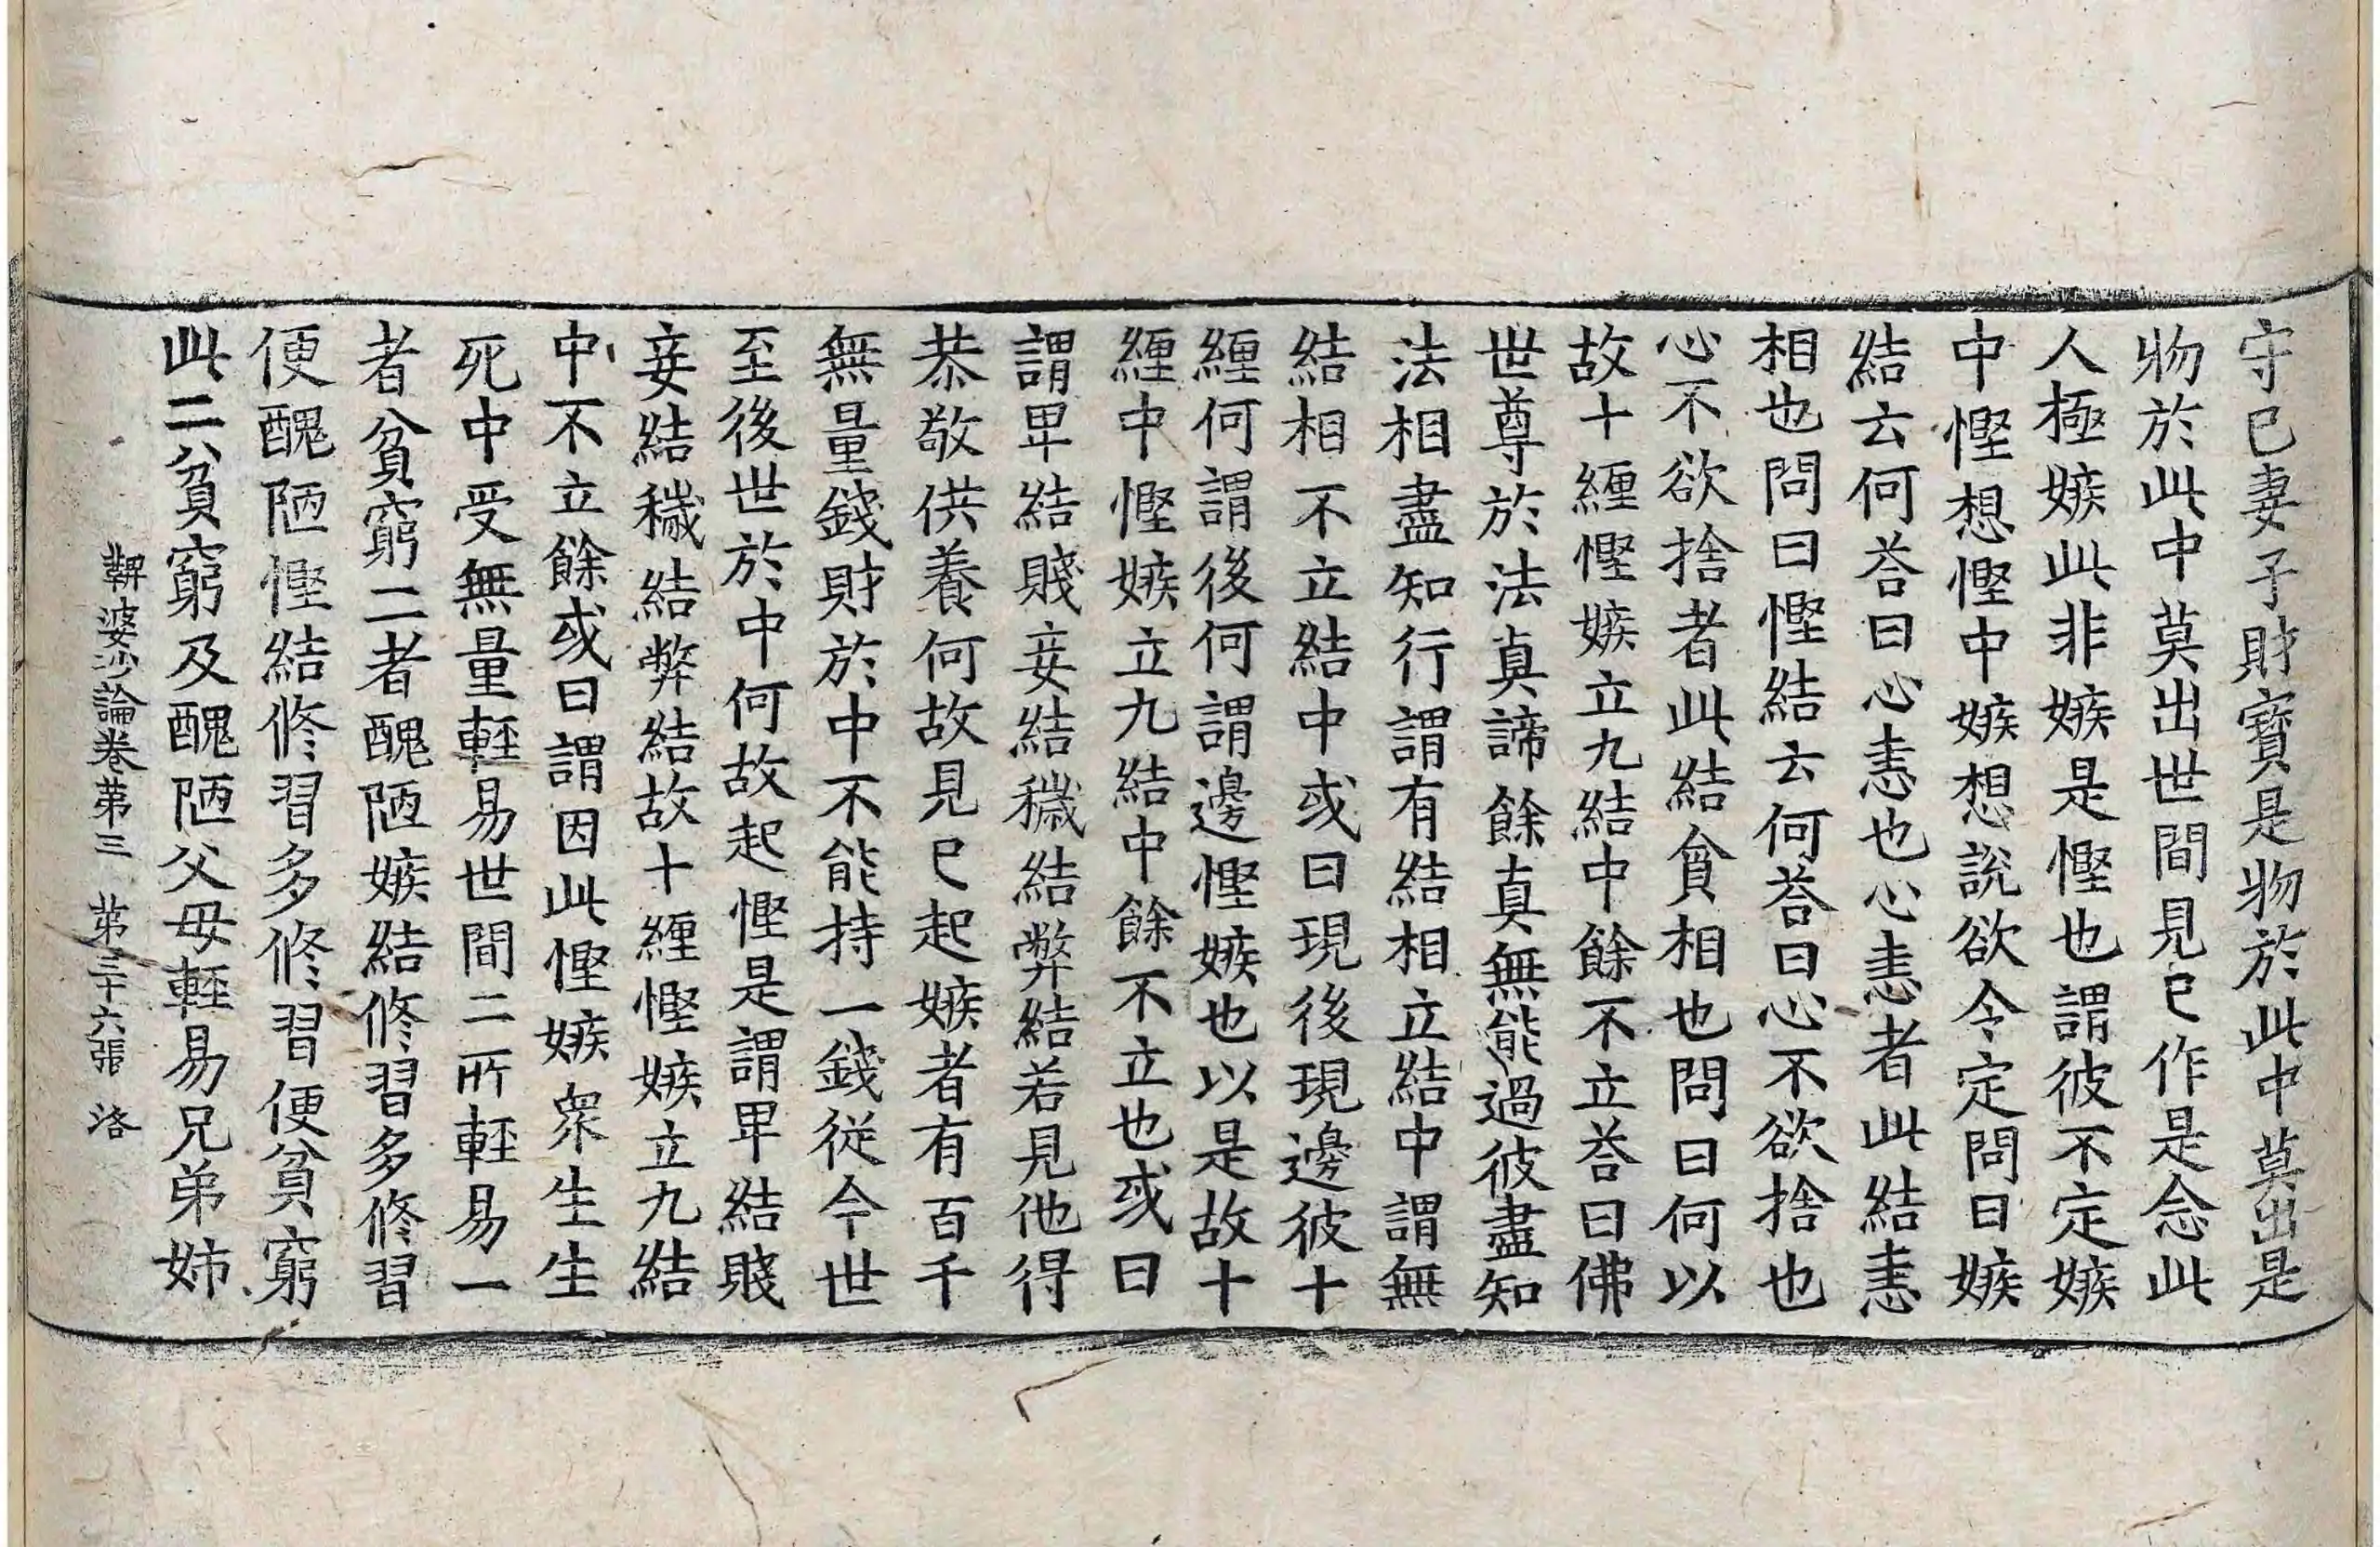 守已妻子財寶是物於此中莫出是
物於此中莫出世間見已作是念此
人極嫉此非嫉是慳也謂彼不定嫉
中慳想慳中嫉想說欲令定問曰嫉
結云何荅曰心恚也心恚者此結恚
相也問曰慳結云何荅曰心不欲捨也
心不欲捨者此結貪相也問曰何以
故十纏慳嫉立九結中餘不立荅曰佛
世尊於法真諦餘真無能過彼盡知
法相盡知行謂有結相立結中謂無
結相不立結中或曰現後現邊彼十
纏何謂後何謂邊慳嫉也以是故十
纏中慳嫉立九結中餘不立也或曰
謂卑結賤妾結穢結弊結若見他得
恭敬供養何故見已起嫉者有百千
無量錢財於中不能持一錢從今世
至後世於中何故起慳是謂卑結賤
妾結穢結弊結故十纏慳嫉立九結
中不立餘或曰謂因此慳嫉衆生生
死中受無量輕易世間二所輕易一
者貧窮二者醜陋嫉結修習多修習
便醜陋慳結修習多修習便貧窮
此二貧窮及醜陋父母輕易兄弟姉
鞞婆沙論卷第三　第三十六張　洛